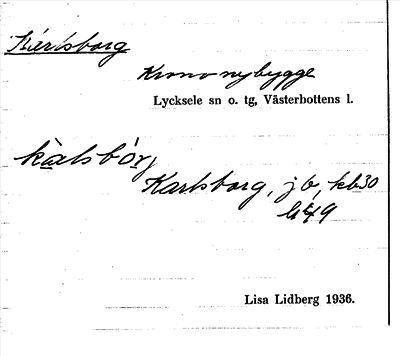 Karlsborg
Krono nybygge
Lycksele sn o. tg, Västerbottens l.
kàlsbórj
Karlsborg, jb, kb30
Lisa Lidberg 1936.